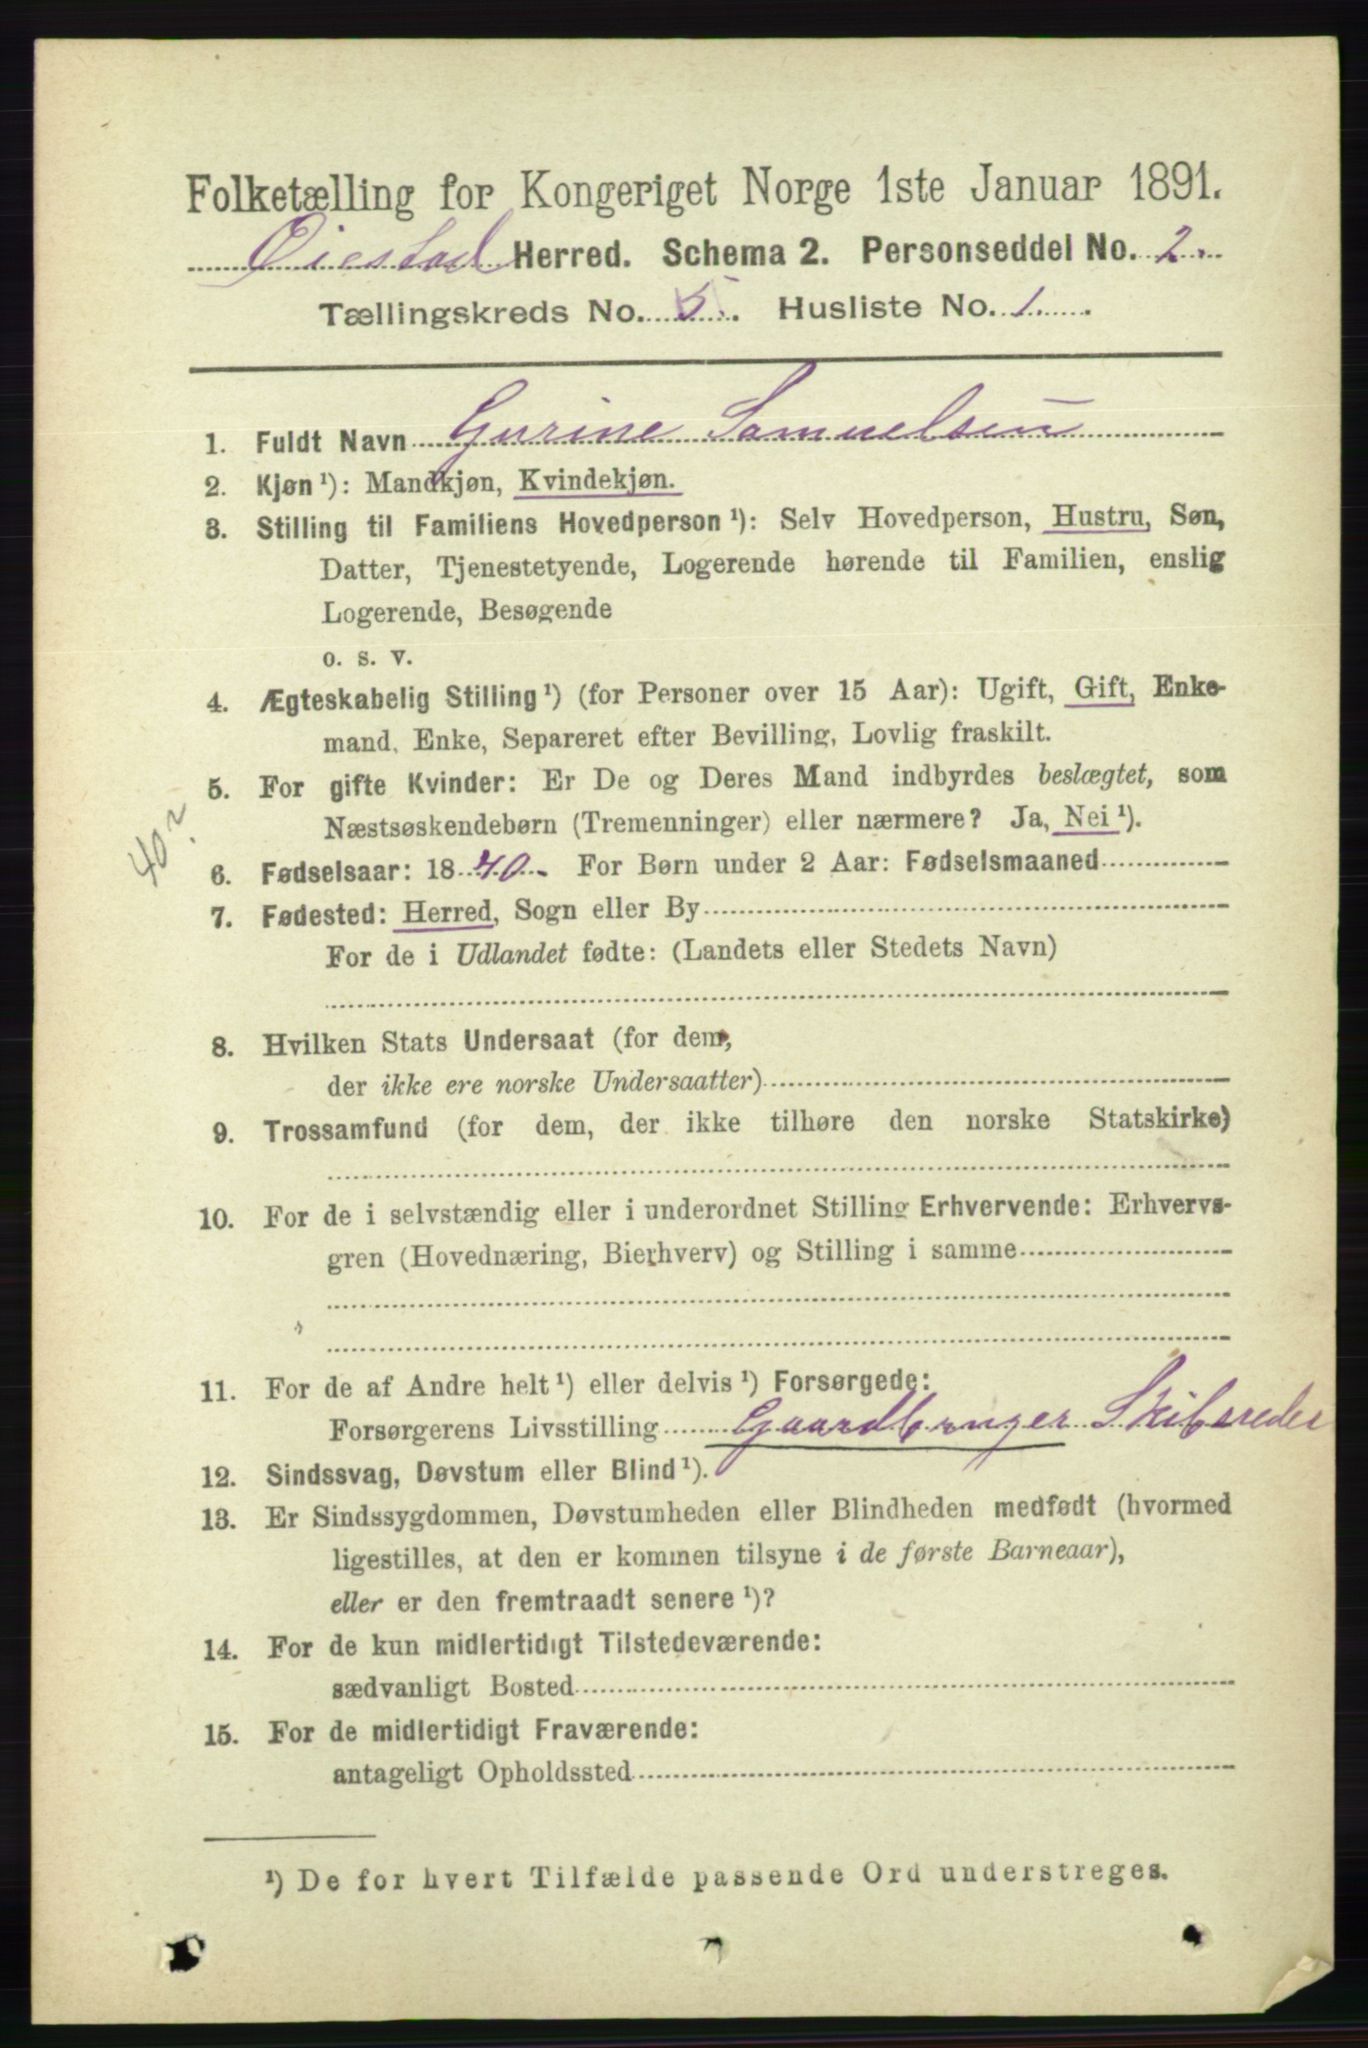 Folketælling for Kongeriget Norge 1ste Januar 1891.
Øiestad Herred. Schema 2. Personseddel No. 2.
Tællingskreds No. 5. Husliste No. 1.
1. Fuldt Navn Gurine Samuelsen
2. Kjøn ¹): Mandkjøn, Kvindekjøn.
3. Stilling til Familiens Hovedperson ¹): Selv Hovedperson, Hustru, Søn,
Datter, Tjenestetyende, Logerende hørende til Familien, enslig
Logerende, Besøgende
o. s. v.
4. Ægteskabelig Stilling ¹) (for Personer over 15 Aar): Ugift, Gift, Enke-
mand, Enke, Separeret efter Bevilling, Lovlig fraskilt.
5. For gifte Kvinder: Er De og Deres Mand indbyrdes beslægtet, som
Næstsøskendebørn (Tremenninger) eller nærmere? Ja, Nei ¹).
40?
6. Fødselsaar: 1840. For Børn under 2 Aar: Fødselsmaaned
7. Fødested: Herred, Sogn eller By
For de i Udlandet fødte: (Landets eller Stedets Navn)
8. Hvilken Stats Undersaat (for dem,
der ikke ere norske Undersaatter)
9. Trossamfund (for dem, der ikke tilhøre den norske Statskirke)
10. For de i selvstændig eller i underordnet Stilling Erhvervende: Erhvervs-
gren (Hovednæring, Bierhverv) og Stilling i samme
11. For de af Andre helt ¹) eller delvis ¹) Forsørgede:
Forsørgerens Livsstilling Gaardbruger Skibsreder
12. Sindssvag, Døvstum eller Blind ¹).
13. Er Sindssygdommen, Døvstumheden eller Blindheden medfødt (hvormed
ligestilles, at den er kommen tilsyne i de første Barneaar),
eller er den fremtraadt senere ¹)?
14. For de kun midlertidigt Tilstedeværende:
sædvanligt Bosted
15. For de midlertidigt Fraværende:
antageligt Opholdssted
¹) De for hvert Tilfælde passende Ord understreges.